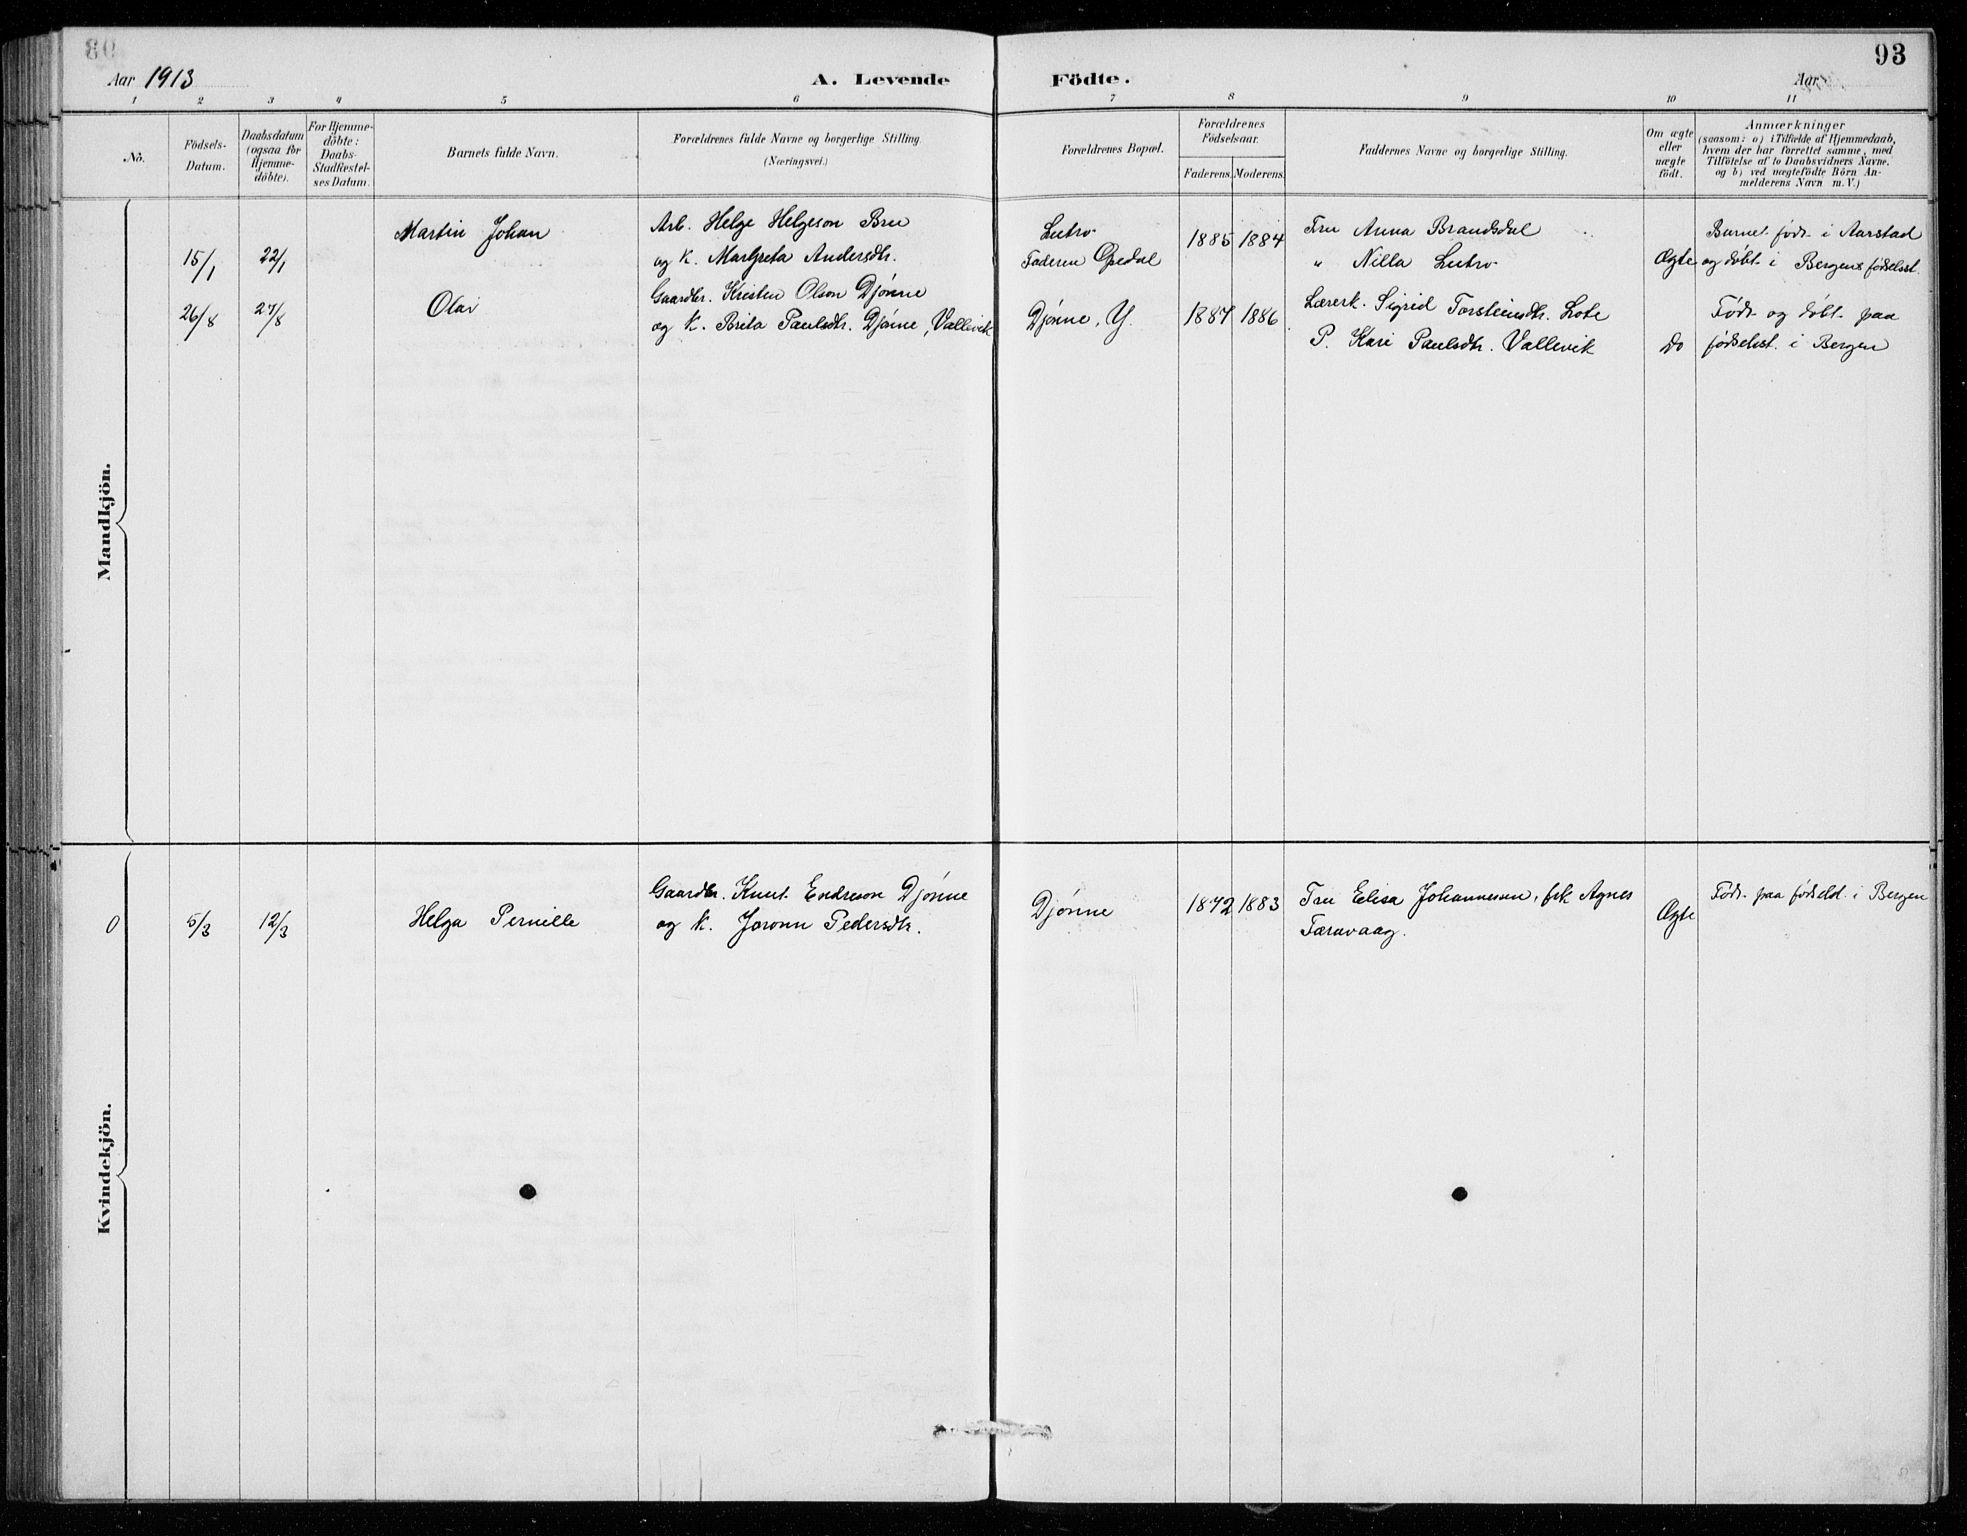 93
Aar 1913
A. Levende Födte.
Aar
1 2 3 4 5 6 7 8 9 10 11
No.
Födsels-
Datum.
Daabsdatum
(ogsaa for
Hjemme-
döbte).
For Hjemme-
döbte:
Daabs-
Stadfæstel-
ses Datum.
Barnets fulde Navn.
Forældrenes fulde Navne og borgerlige Stilling.
(Næringsvei.)
Forældrenes Bopæl.
Forældrenes
Födselsaar.
Faderens. Moderens.
Faddernes Navne og borgerlige Stilling.
Om ægte
eller
uægte
födt.
Anmærkninger
(saasom: a) i Tilfælde af Hjemmedaab,
hvem der har forrettet samme, med
Tilföielse af to Daabsvidners Navne.
og b) ved uægtefödte Börn An-
melderens Navn m. V.)
Mandkjön.
15/1 22/1 Martin Johan
Arb. Helge Helgeson Bru
og K. Margreta Andersdtr.
Lutro
Faderen Opedal
1885 1884
Fru Anna Brandsdal
" Nilla Lutro
Ægte
Barnet født i Aarstad
og døbt i Bergens fødselsst.
26/8 27/8 Olai
Gaardbr. Kristen Olson Djønne
og K. Brita Paulsdtr. Djønne, Vallevik
Djønne, Y.
1887 1886
Lærerk. Sigrid Torsteinsdtr. Lote
P. Kari Paulsdtr. Vallevik
Do
Født og døbt paa
fødselsst. i Bergen
Kvindekjön.
0 5/3 12/3 Helga Pernille
Gaardbr. Knut Endreson Djønne
og K. Joronn Pedersdtr.
Djønne
1872 1883
Fru Elisa Johannessen, frk Agnes
Færavaag.
Ægte
Født paa fødselst. i Bergen